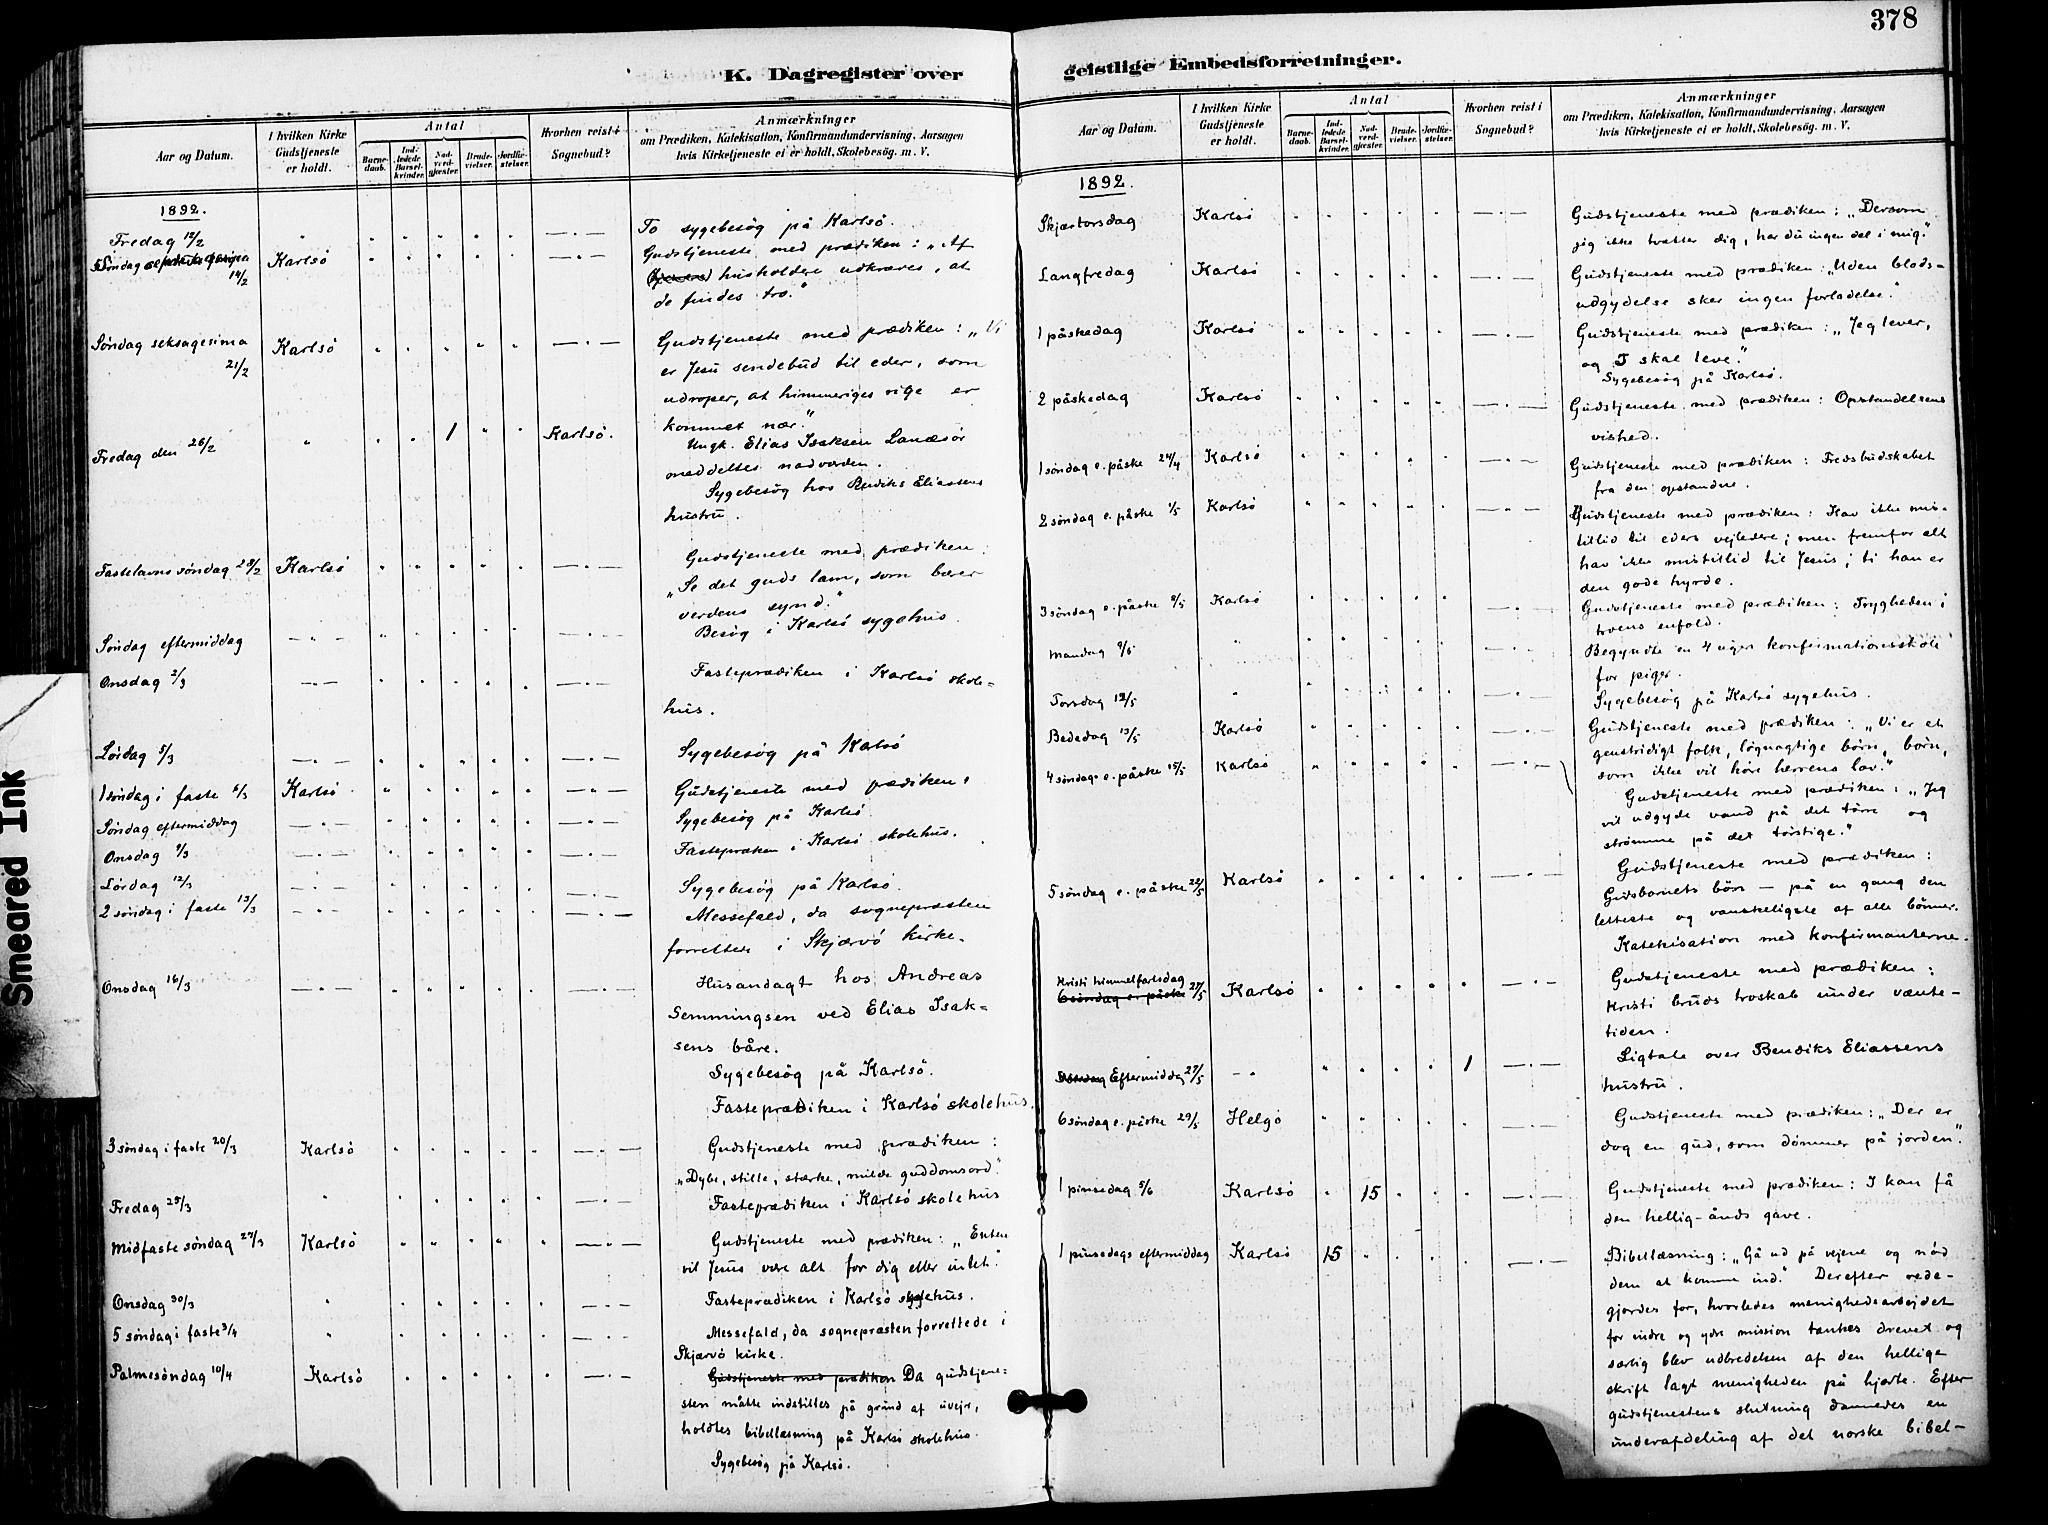 378
K. Dagregister over
geistlige Embedsforretninger.
Smeared Ink
Aar og Datum.
I hvilken Kirke Gudstjeneste er holdt.
Antal
Barnedaab.
Indledede Barselkvinder.
Nadverdgjæster.
Brudevielser.
Jordfæstelser.
Hvorhen reist i Sognebud?
Anmærkninger
om Prædiken, Katekisation, Konfirmandundervisning, Aarsagen
hvis Kirketjeneste ei er holdt, Skolebesög. m. V.
1892.
Fredag 12/2 To sygebesøg på Karlsö.
Søndag 14/2 Karlsö Gudstjeneste med prædiken: „Af
husholdere udkræves, at
de findes tro."
Søndag seksagesima 21/2 Karlsö Gudstjeneste med prædiken: „Vi
er Jesu sendebud til eder, som
udroper, at himmeriges rige er
kommet nær."
Fredag den 26/2 1 Karlsö. Ungk. Elias Isaksen Lanæsör
meddeltes nadverden.
Sygebesøg hos Bendiks Eliassens
hustru.
Fastelavns søndag 28/2 Karlsö Gudstjeneste med prædiken:
„Se det guds lam, som bærer
verdens synd."
Søndag eftermiddag Besøg i Karlsö sygehus.
Onsdag 2/3 Fasteprædiken i Karlsö skole=
hus.
Lördag 5/3 Sygebesøg på Kalsö
1 søndag i faste 6/3 Karlsö Gudstjeneste med prædiken,
Søndag eftermiddag Sygebesøg på Karlsö
Onsdag 9/3 Fastepræken i Karlsö skolehus.
Lördag 12/3 Sygebesøg på Karlsö.
2 søndag i faste 13/3 Messefald, da sognepræsten
forretter i Skjærvö kirke.
Onsdag 16/3 Husandagt hos Andreas
Semmingsen ved Elias Isak=
sens båre.
Sygebesøg på Karlsö.
Fasteprædiken i Karlsö skolehus.
3 søndag i faste 20/3 Karlsö Gudstjeneste med prædiken:
„Dybe, stille, stærke, milde guddomsord."
Fredag 25/3 Fasteprædiken i Karlsö skolehus
Midfaste søndag 27/3 Karlsö Gudstjeneste med prædiken: „Enten
vil Jesus være alt for dig eller intet."
Onsdag 30/3 Fasteprædiken i Karlsö
5 søndag i faste 3/4 Messefald, da sognepræsten forrettede i
Skjærvö kirke.
Palmesøndag 10/4 Karlsö Gudstjeneste med prædiken Da gudstjene=
sten måtte indstilles på grund af uvejr,
holdtes bibellæsning på Karlsö skolehus.
Sygebesøg på Karlsö.
Aar og Datum.
I hvilken Kirke Gudstjeneste er holdt.
Antal
Barnedaab.
Indledede Barselkvinder.
Nadverdgjæster.
Brudevielser.
Jordfæstelser.
Hvorhen reist i Sognebud?
Anmærkninger
om Prædiken, Katekisation, Konfirmandundervisning, Aarsagen
hvis Kirketjeneste ei er holdt, Skolebesög. m. V.
1892.
Skjærtorsdag Karlsö Gudstjeneste med prædiken: „Dersom
jeg ikke tvætter dig, har du ingen del i mig."
Langfredag Karlsö Gudstjeneste med prædiken: „Uden blods=
udgydelse sker ingen forladelse."
1 påskedag Karlsö Gudstjeneste med prædiken: „Jeg lever,
og I skal leve."
Sygebesøg på Karlsö.
2 påskedag Karlsö Gudstjeneste med prædiken: Opstandelsens
vished.
1 søndag e. påske 24/4 Karlsö Gudstjeneste med prædiken: Fredsbudskabet
fra den opstandne.
2 søndag e. påske 1/5 Karlsö Gudstjeneste med prædiken: Hav ikke mis=
tillid til eders vejledere; men fremfor alt
hav ikke mistillid til Jesus; ti han er
den gode hyrde.
3 søndag e. påske 8/5 Karlsö Gudstjeneste med prædiken: Trygheden i
troens enfold.
Mandag 9/5 Begyndte en 4 ugers konfirmationsskole
for piger.
Torsdag 12/5 Sygebesøg på Karlsö sygehus.
Bededag 13/5 Karlsö Gudstjeneste med prædiken: „Vi er et
genstridigt folk, løgnagtige børn, børn,
som ikke vil høre herrens lov."
4 søndag e. påske 15/5 Karlsö Gudstjeneste med prædiken: „Jeg
vil udgyde vand på det tørre og
strømme på det tørstige."
5 søndag e. påske 22/5 Karlsö Gudstjeneste med prædiken:
Gudsbarnets bön — på en gang den
letteste og vanskeligste af alle bönner.
Katekisation med konfirmanterne.
Kristi himmelfartsdag
6 søndag e. påske 27/5 Karlsö Gudstjeneste med prædiken:
Kristi bruds troskab under vænte-
tiden.
Eftermiddag 27/5 1 Ligtale over Bendiks Eliassens
hustru.
6 søndag e. påske 29/5 Helgö Gudstjeneste med prædiken: „Der er
dog en gud, som dömmer på jorden".
1 pinsedag 5/6 Karlsö 15 Gudstjeneste med prædiken: I kan få
den hellig-ånds gave.
1 pinsedags eftermiddag Karlsö 15 Bibellæsning: „Gå ud på vejene og nöd
dem at komme ind." Derefter rede-
gjordes for, hvorledes menighedsarbejdet
for indre og ydre mission tænkes drevet og
særlig blev udbredelsen af den hellige
skrift lagt menigheden på hjærte. Efter
gudstjenestens slutning dannedes en
underafdeling af det norske bibel-